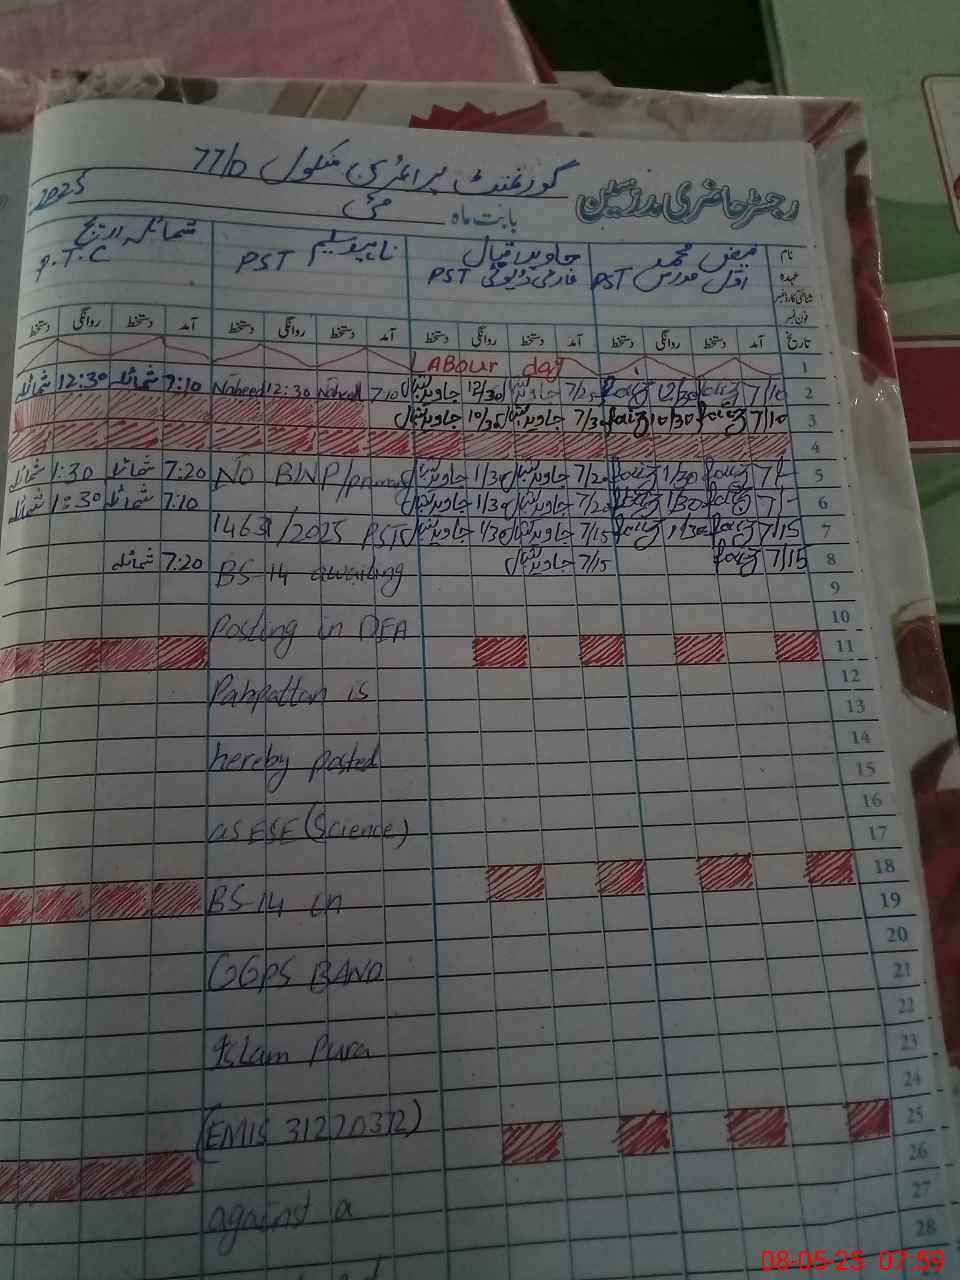 گورنمنٹ پرائمری سکول 77/D
رجسٹر حاضری مدرسین
بابت ماہ مئی 2025
نام فیض محمد جاوید اقبال
عہدہ اول مدرس PST PST PST P.T.C
شناختی کارڈ نمبر
فون نمبر
تاریخ آمد دستخط روانگی دستخط آمد دستخط روانگی دستخط آمد دستخط روانگی دستخط آمد دستخط روانگی دستخط
1 Labour day
2 7/10 faiz 12/30 faiz 7/25 جاوید اقبال 12/30 جاوید اقبال 7:10 Naheed 12:30 Naheed 7:10 شمائلہ 12:30 شمائلہ
3 7/10 faiz 10/30 faiz 7/30 جاوید اقبال جاوید اقبال
4
5 7/- faiz 1/30 faiz 7/20 جاوید اقبال 1/30 جاوید اقبال NO BNP/primary 7:20 شمائلہ 1:30 شمائلہ
6 7/- faiz 1/30 faiz 7/20 جاوید اقبال 1/30 جاوید اقبال 7:10 شمائلہ 1:30 شمائلہ
7 7/15 faiz 1/30 faiz 7/15 جاوید اقبال 1/30 جاوید اقبال 1463/2025 PST
8 7/15 faiz 7/15 جاوید اقبال BS-14 awaiting 7:20 شمائلہ
9
10 Posting in DEA
11
12 Pakpattan is
13
14 hereby posted
15
16 as ESE (Science)
17
18
19 BS-14 in
20
21 GGPS BAND
22
23 Islam Pura
24
25 (EMIS 31220372)
26
27 against a
28
08-05-25 07:59